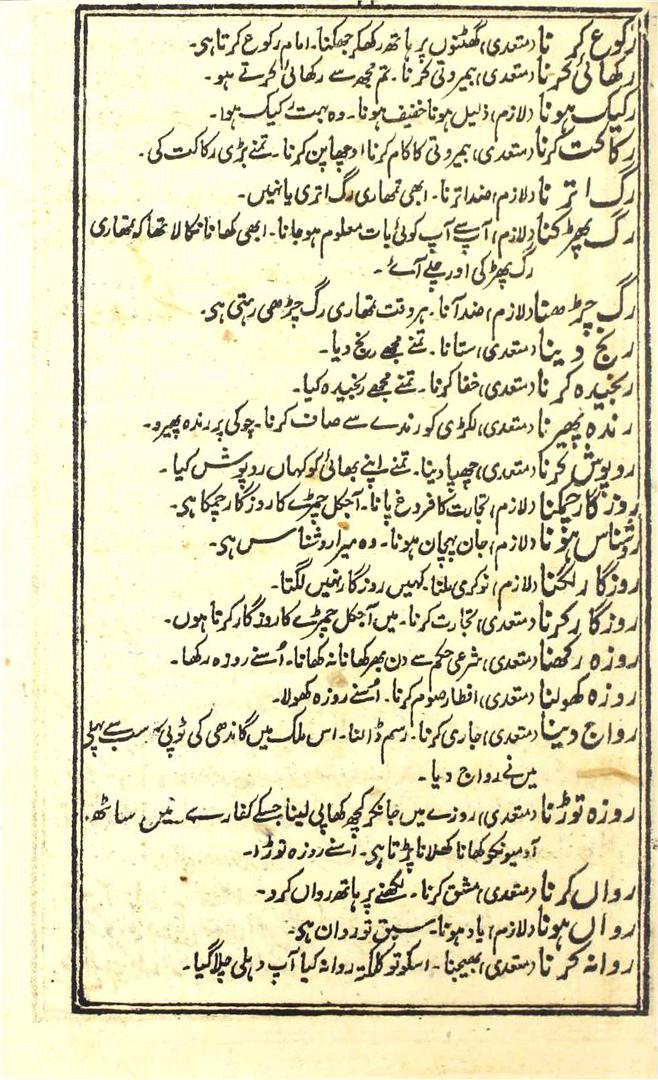 رکوع کرنا (متعدی) گھٹنوں پر ہاتھ رکھکر جھکنا۔ امام رکوع کرتا ہی۔
رکھائی کرنا (متعدی) بیمروتی کرنا۔ تم مجھ سے رکھائی کرتے ہو۔
رکیک ہونا (لازم) ذلیل ہونا خفیف ہونا۔ وہ بہت رکیک ہوا۔
رکاکت کرنا (متعدی) بیمروتی کا کام کرنا اوچھا پن کرنا۔ تمنے بڑی رکاکت کی۔
رگ اترنا (لازم) ضد اترنا۔ ابھی تمھاری رگ اتری یا نہیں۔
رگ پھڑکنا (لازم) آپ سے آپ کوئی بات معلوم ہو جانا۔ ابھی کھانا نکالا تھا کہ تمھاری
رگ پھڑکی اور چلے آئے۔
رگ چڑھنا (لازم) ضد آنا۔ ہر وقت تمھاری رگ چڑھی رہتی ہی۔
رنج دینا (متعدی) ستانا۔ تمنے مجھے رنج دیا۔
رنجیدہ کرنا (متعدی) خفا کرنا۔ تمنے مجھے رنجیدہ کیا۔
رندہ پھیرنا (متعدی) لکڑی کو رندے سے صاف کرنا۔ چوکی پر رندہ پھیرو۔
روپوش کرنا (متعدی) چھپا دینا۔ تمنے اپنے بھائی کو کہاں روپوش کیا۔
روزگار چمکنا (لازم) تجارت کا فروغ پانا۔ آجکل چمڑے کا روزگار چمکا ہی۔
روشناس ہونا (لازم) جان پہچان ہونا۔ وہ میرا روشناس ہی۔
روزگار لگنا (لازم) نوکری ملنا۔ کہیں روزگار نہیں لگتا۔
روزگار کرنا (متعدی) تجارت کرنا۔ میں آجکل چمڑے کا روزگار کرتا ہوں۔
روزہ رکھنا (متعدی) شرعی حکم سے دن بھر کھانا نہ کھانا۔ اُسنے روزہ رکھا۔
روزہ کھولنا (متعدی) افطار صوم کرنا۔ اُسنے روزہ کھولا۔
رواج دینا (متعدی) جاری کرنا۔ رسم ڈالنا۔ اس ملک میں گاندھی کی ٹوپی کو سب سے پہلی
میں نے رواج دیا۔
روزہ توڑنا (متعدی) روزے میں جانکر کچھ کھا پی لینا جسکے کفارے میں ساٹھ
آدمیونکو کھانا کھلانا پڑتا ہی۔ اسنے روزہ توڑا۔
رواں کرنا (متعدی) مشق کرنا۔ لکھنے پر ہاتھ رواں کرو۔
رواں ہونا (لازم) یاد ہونا۔ سبق تو رواں ہی۔
روانہ کرنا (متعدی) بھیجنا۔ اسکو تو کلکتہ روانہ کیا آپ دہلی چلا گیا۔